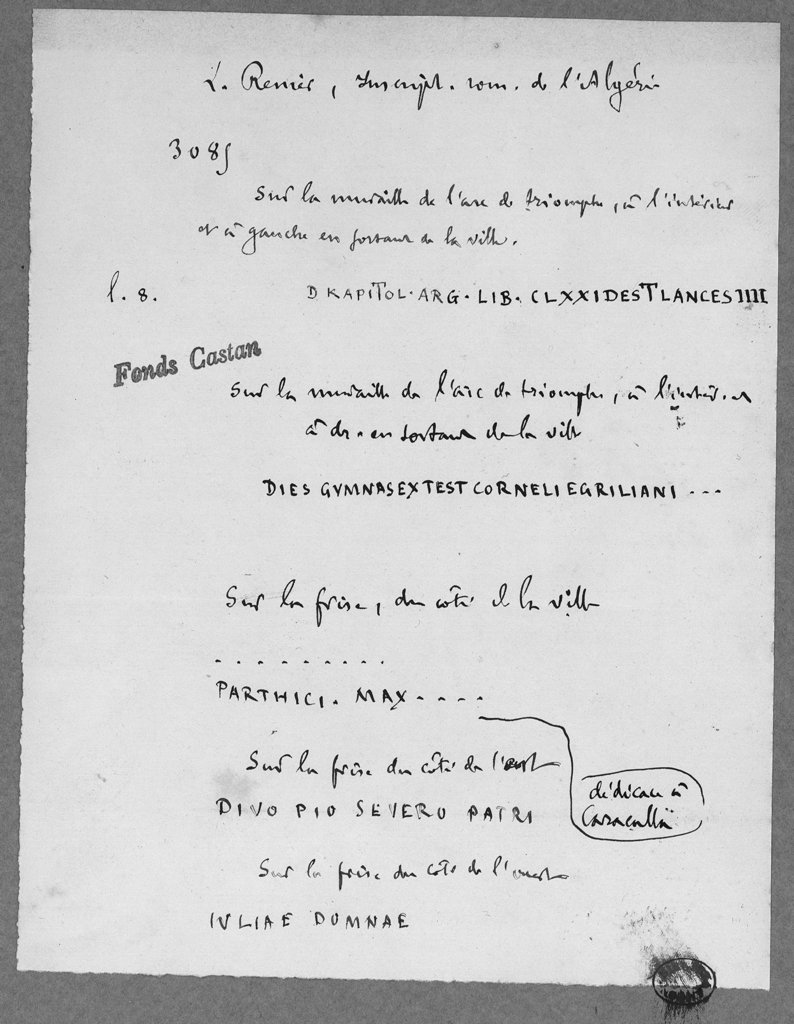 L. Renier, Inscript. rom. de l'Algérie
3085
Sur la muraille de l'arc de triomphe, à l'intérieur
et à gauche en sortant de la ville.
l. 8. D KAPITOL · ARG · LIB · CLXXI DEST LANCES IIII
Fonds Castan
Sur la muraille de l'arc de triomphe, à l'intér. et
à dr. en sortant de la ville
DIES GVMNAS EX TEST CORNELI EGRILIANI ...
Sur la frise, du côté de la ville
. . . . . . . . . .
PARTHICI . MAX . . . .
Sur la frise du côté de l'est
dédicace à
DIVO PIO SEVERO PATRI
Caracalla
Sur la frise du côté de l'ouest
IVLIAE DOMNAE